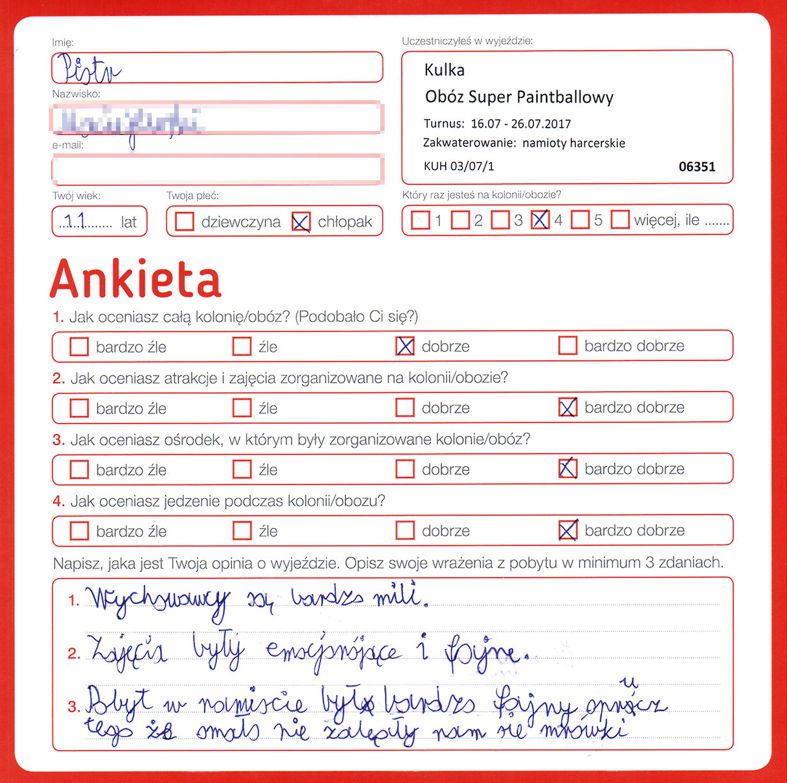 Imię:
Piotr
Nazwisko:
e-mail:
Twój wiek:
11 lat
Twoja płeć:
dziewczyna chłopak
Uczestniczyłeś w wyjeździe:
Kulka
Obóz Super Paintballowy
Turnus: 16.07 - 26.07.2017
Zakwaterowanie: namioty harcerskie
KUH 03/07/1 06351
Który raz jesteś na kolonii/obozie?
1 2 3 4 5 więcej, ile .......
Ankieta
1. Jak oceniasz całą kolonię/obóz? (Podobało Ci się?)
bardzo źle źle dobrze bardzo dobrze
2. Jak oceniasz atrakcje i zajęcia zorganizowane na kolonii/obozie?
bardzo źle źle dobrze bardzo dobrze
3. Jak oceniasz ośrodek, w którym były zorganizowane kolonie/obóz?
bardzo źle źle dobrze bardzo dobrze
4. Jak oceniasz jedzenie podczas kolonii/obozu?
bardzo źle źle dobrze bardzo dobrze
Napisz, jaka jest Twoja opinia o wyjeździe. Opisz swoje wrażenia z pobytu w minimum 3 zdaniach.
1. Wychowawcy są bardzo mili.
2. Zajęcia były emocjonójące i fajne.
3. Pobyt w namiocie był bardzo fajny oprucz
tego że omało nie zalepiły nam się mrówki